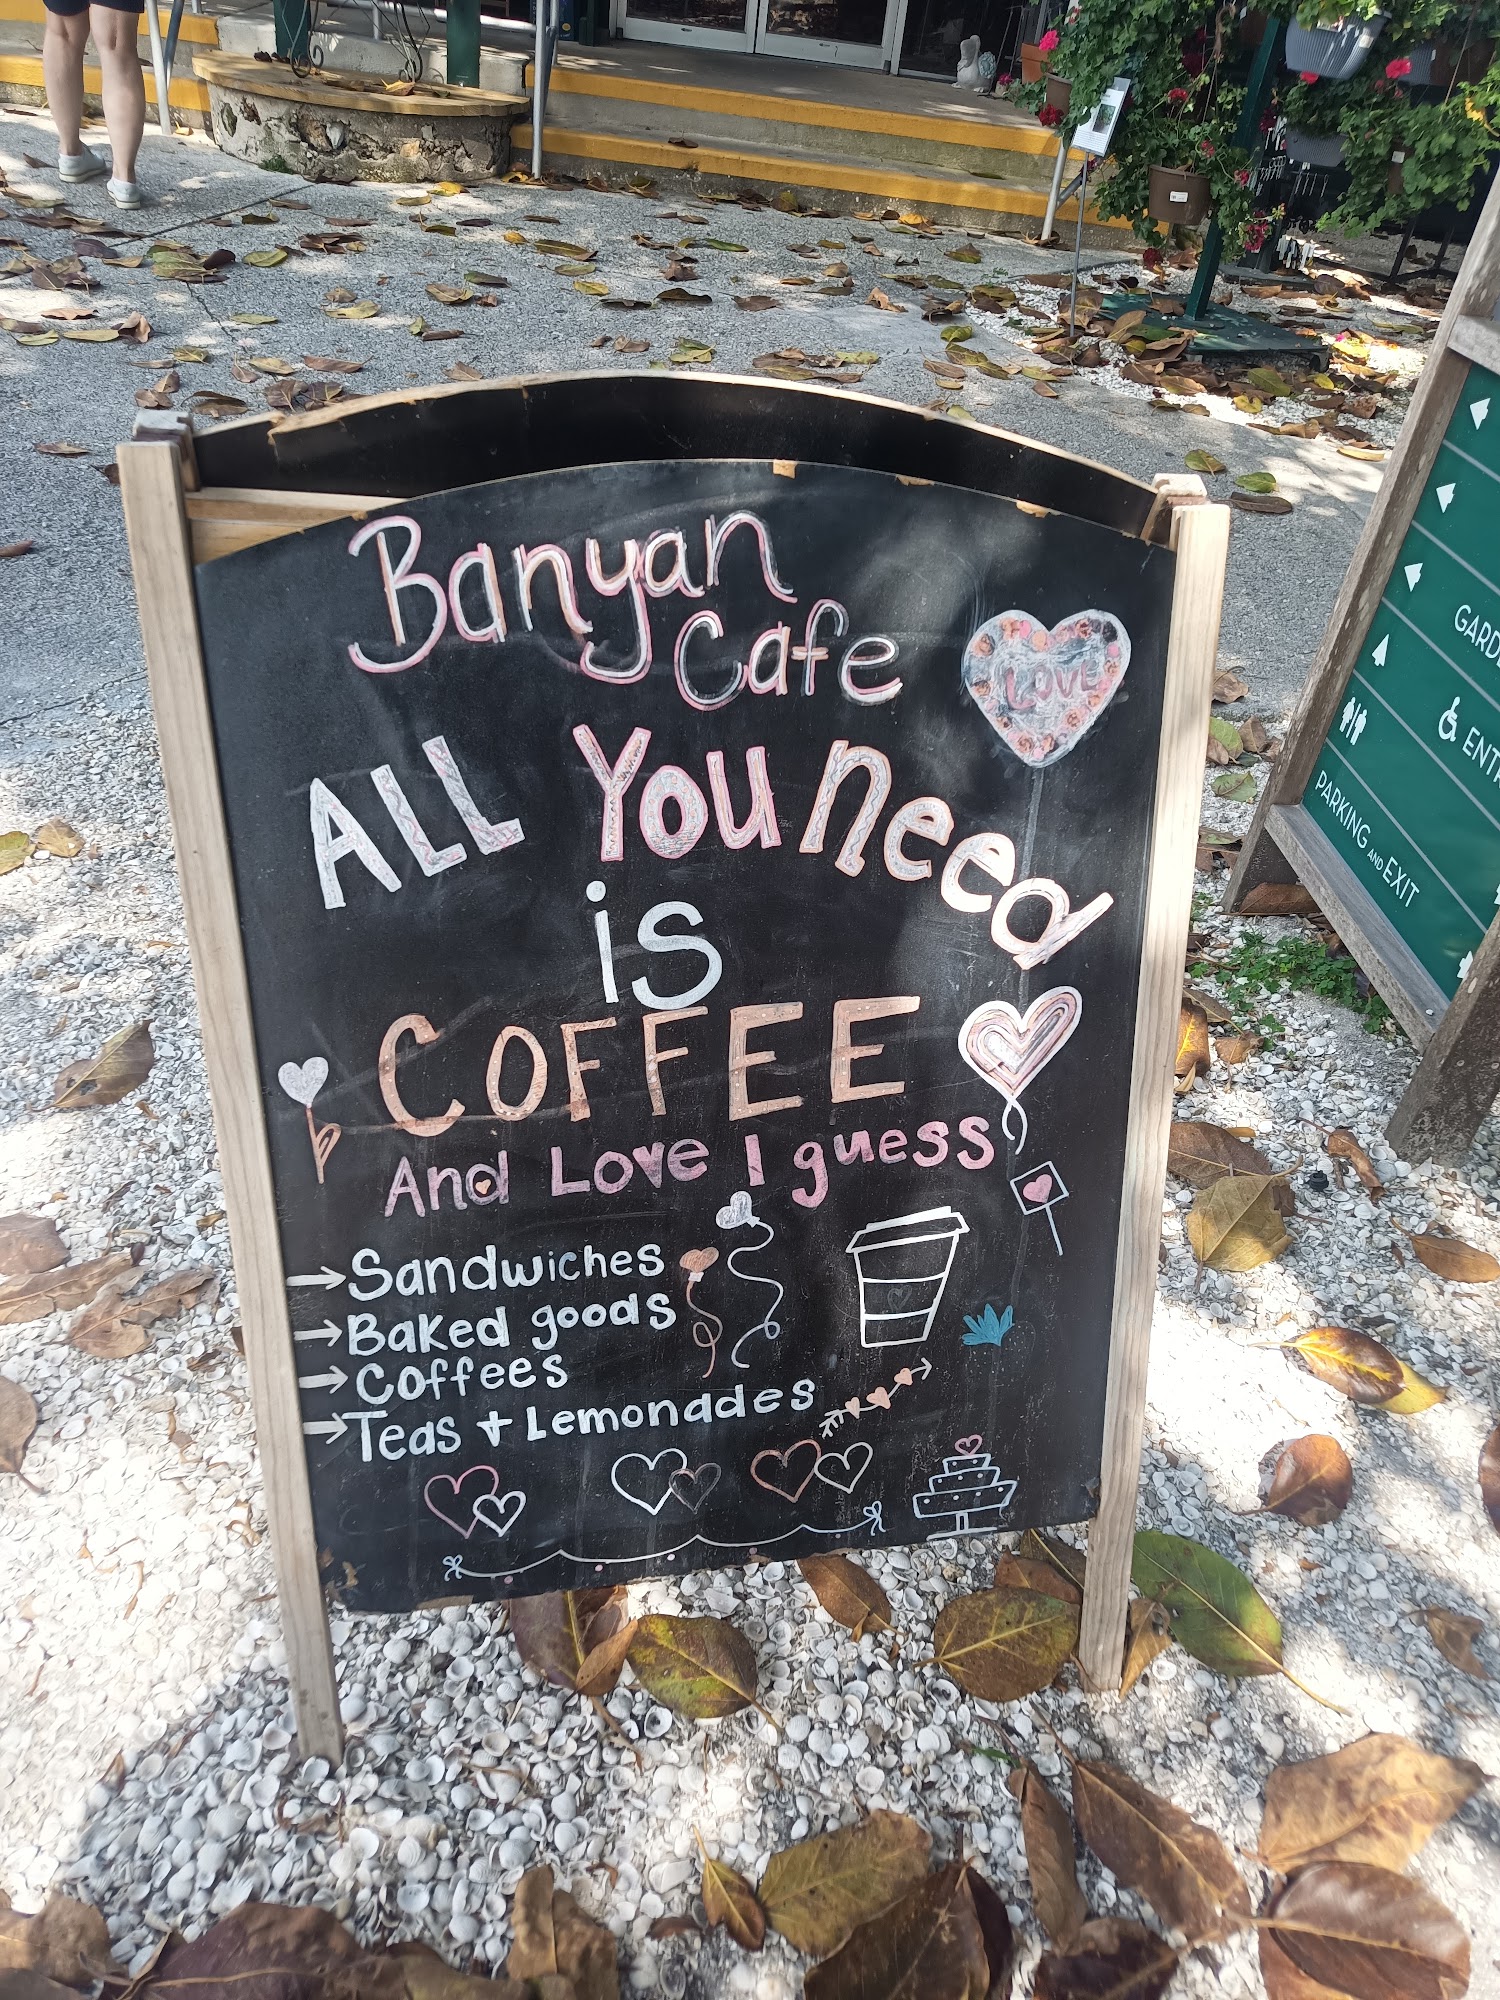 Banyan
Cafe
LOVE
ALL You Need
is
COFFEE
And Love I guess
→Sandwiches
→Baked goods
→Coffees
→Teas + Lemonades
PARKING AND EXIT